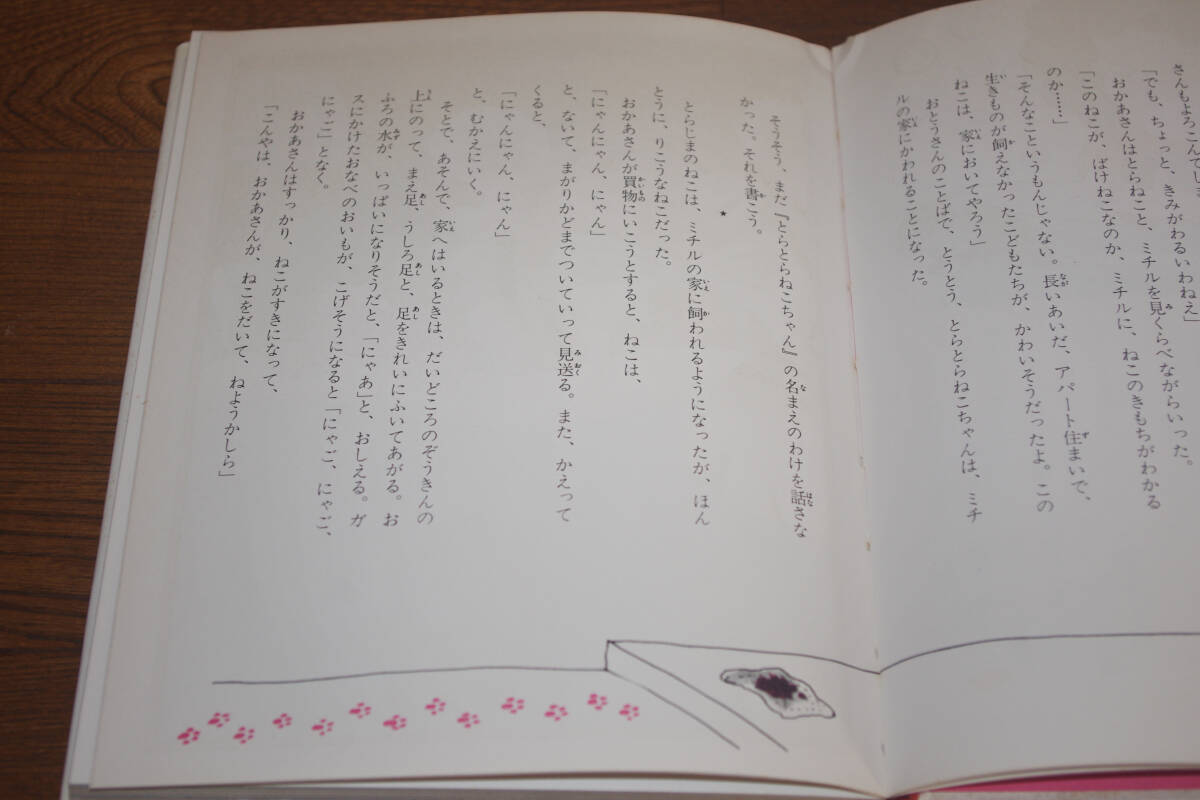 さんもよろこんでし
「でも、ちょっと、きみがわるいわねえ」
おかあさんはとらねこと、ミチルを見くらべながらいった。
「このねこが、ばけねこなのか、ミチルに、ねこのきもちがわかる
のか……」
「そんなこというもんじゃない。長いあいだ、アパート住まいで、
生きものが飼えなかったこどもたちが、かわいそうだったよ。この
ねこは、家においてやろう」
おとうさんのことばで、とうとう、とらとらねこちゃんは、ミチ
ルの家にかわれることになった。
そうそう、まだ『とらとらねこちゃん』の名まえのわけを話さな
かった。それを書こう。
★
とらじまのねこは、ミチルの家に飼われるようになったが、ほん
とうに、りこうなねこだった。
おかあさんが買物にいこうとすると、ねこは、
「にゃんにゃん、にゃん」
と、ないて、まがりかどまでついていって見送る。また、かえって
くると、
「にゃんにゃん、にゃん」
と、むかえにいく。
そとで、あそんで、家へはいるときは、だいどころのぞうきんの
上にのって、まえ足、うしろ足と、足をきれいにふいてあがる。お
ふろの水が、いっぱいになりそうだと、「にゃあ」と、おしえる。ガ
スにかけたおなべのおいもが、こげそうになると「にゃご、にゃご、
にゃご」となく。
おかあさんはすっかり、ねこがすきになって、
「こんやは、おかあさんが、ねこをだいて、ねようかしら」